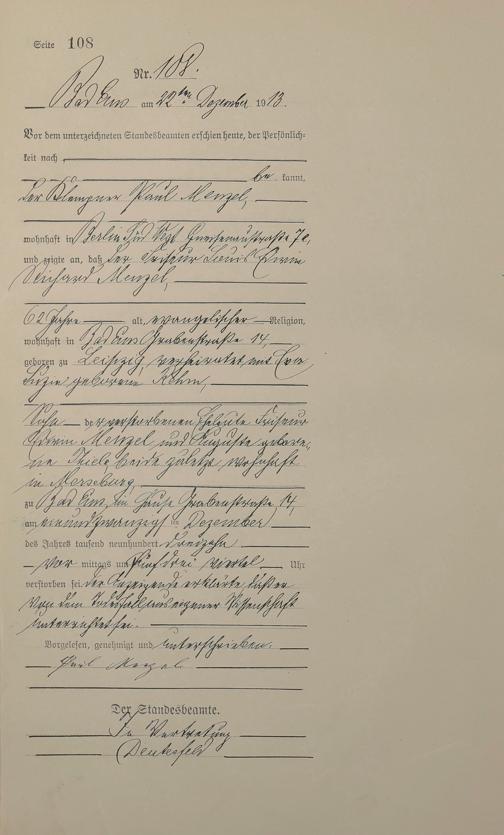 Seite 108
Nr. 108.
Bad Ems am 22ten Dezember 1913.
Vor dem unterzeichneten Standesbeamten erschien heute, der Persönlich-
keit nach
be kannt,
Der Klempner Paul Menzel,
wohnhaft in Berlin Süd West Gneisenaustraße 7
und zeigte an, daß der Friseur Louis Edwin
Richard Menzel,
62 Jahre alt, evangelischer Religion,
wohnhaft in Bad Ems Grabenstraße 14,
geboren zu Leipzig, verheiratet mit
geborene
Sohn der verstorbenen Eheleute Friseur
Edwin Menzel und Auguste gebore-
ne Thiele beide zuletzt wohnhaft
in Merseburg
zu Bad Ems, im Hause Grabenstraße 14,
am einundzwanzigsten Dezember
des Jahres tausend neunhundert dreizehn
Vor mittags um drei viertel Uhr
verstorben sei. Der Anzeigende erklärte daß er
von dem Todesfall aus eigener Wissenschaft
unterrichtet sei.
Vorgelesen, genehmigt und unterschrieben.
Paul Menzel
Der Standesbeamte.
In Vertretung